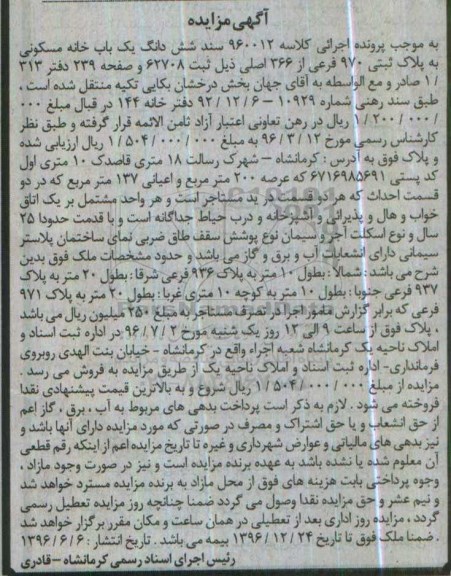 آگهی مزایده
به موجب پرونده اجرائی کلاسه ۹۶۰۰۱۲ سند شش دانگ یک باب خانه مسکونی
به پلاک ثبتی ۹۷۰ فرعی از ۳۶۶ اصلی ذیل ثبت ۶۲۷۰۸ و صفحه ۲۳۹ دفتر ۳۱۳
/ ۱ صادر و مع الواسطه به آقای جهان بخش درخشان بکایی تکیه منتقل شده است ،
طبق سند رهنی شماره ۱۰۹۲۹ – ۶ / ۱۲ / ۹۲ دفتر خانه ۱۴۴ در قبال مبلغ ۰۰۰
/ ۰۰۰ / ۲۰۰ / ۱ ریال در رهن تعاونی اعتبار آزاد ثامن الائمه قرار گرفته و طبق نظر
کارشناس رسمی مورخ ۱۲ / ۳ / ۹۶ به مبلغ ۰۰۰ / ۰۰۰ / ۵۰۴ / ۱ ریال ارزیابی شده
و پلاک فوق به آدرس : کرمانشاه – شهرک رسالت ۱۸ متری قاصدک ۱۰ متری اول
کد پستی ۶۷۱۶۹۸۵۶۹۱ که عرصه ۲۰۰ متر مربع و اعیانی ۱۳۷ متر مربع که در دو
قسمت احداث که هر دو قسمت در ید مستاجر است و هر واحد مشتمل بر یک اتاق
خواب و هال و پذیرائی و آشپزخانه و درب حیاط جداگانه است و با قدمت حدودا ۲۵
سال و نوع اسکلت آجر و سیمان نوع پوشش سقف طاق ضربی نمای ساختمان پلاستر
سیمانی دارای انشعابات آب و برق و گاز می باشد و حدود مشخصات ملک فوق بدین
شرح می باشد : شمالاً : بطول ۱۰ متر به پلاک ۹۳۶ فرعی شرقا : بطول ۲۰ متر به پلاک
۹۳۷ فرعی جنوبا : بطول ۱۰ متر به کوچه ۱۰ متری غربا : بطول ۲۰ متر به پلاک ۹۷۱
فرعی که برابر گزارش مامور اجرا در تصرف مستاجر به مبلغ ۲۵۰ میلیون ریال می باشد
. پلاک فوق از ساعت ۹ الی ۱۲ روز یک شنبه مورخ ۲ / ۷ / ۹۶ در اداره ثبت اسناد و
املاک ناحیه یک کرمانشاه شعبه اجراء واقع در کرمانشاه – خیابان بنت الهدی روبروی
فرمانداری- اداره ثبت اسناد و املاک ناحیه یک از طریق مزایده به فروش می رسد .
مزایده از مبلغ ۰۰۰ / ۰۰۰ / ۵۰۴ / ۱ ریال شروع و به بالاترین قیمت پیشنهادی نقدا
فروخته می شود . لازم به ذکر است پرداخت بدهی های مربوط به آب ، برق ، گاز اعم
از حق انشعاب و یا حق اشتراک و مصرف در صورتی که مورد مزایده دارای آنها باشد و
نیز بدهی های مالیاتی و عوارض شهرداری و غیره تا تاریخ مزایده اعم از اینکه رقم قطعی
آن معلوم شده یا نشده باشد به عهده برنده مزایده است و نیز در صورت وجود مازاد ،
وجوه پرداختی بابت هزینه های فوق از محل مازاد به برنده مزایده مسترد خواهد شد
و نیم عشر و حق مزایده نقدا وصول می گردد ضمنا چنانچه روز مزایده تعطیل رسمی
گردد ، مزایده روز اداری بعد از تعطیلی در همان ساعت و مکان مقرر برگزار خواهد شد
. ضمنا ملک فوق تا تاریخ ۲۴ / ۱۲ / ۱۳۹۶ بیمه می باشد . تاریخ انتشار : ۶ / ۶ / ۱۳۹۶
رئیس اجرای اسناد رسمی کرمانشاه – قادری